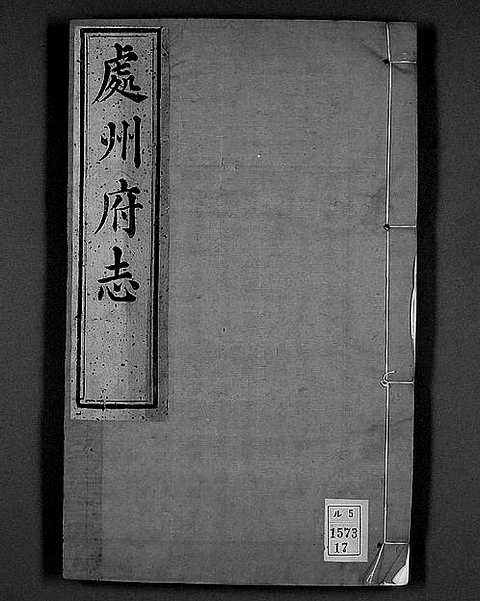 處州府志
ル 5
1573
17